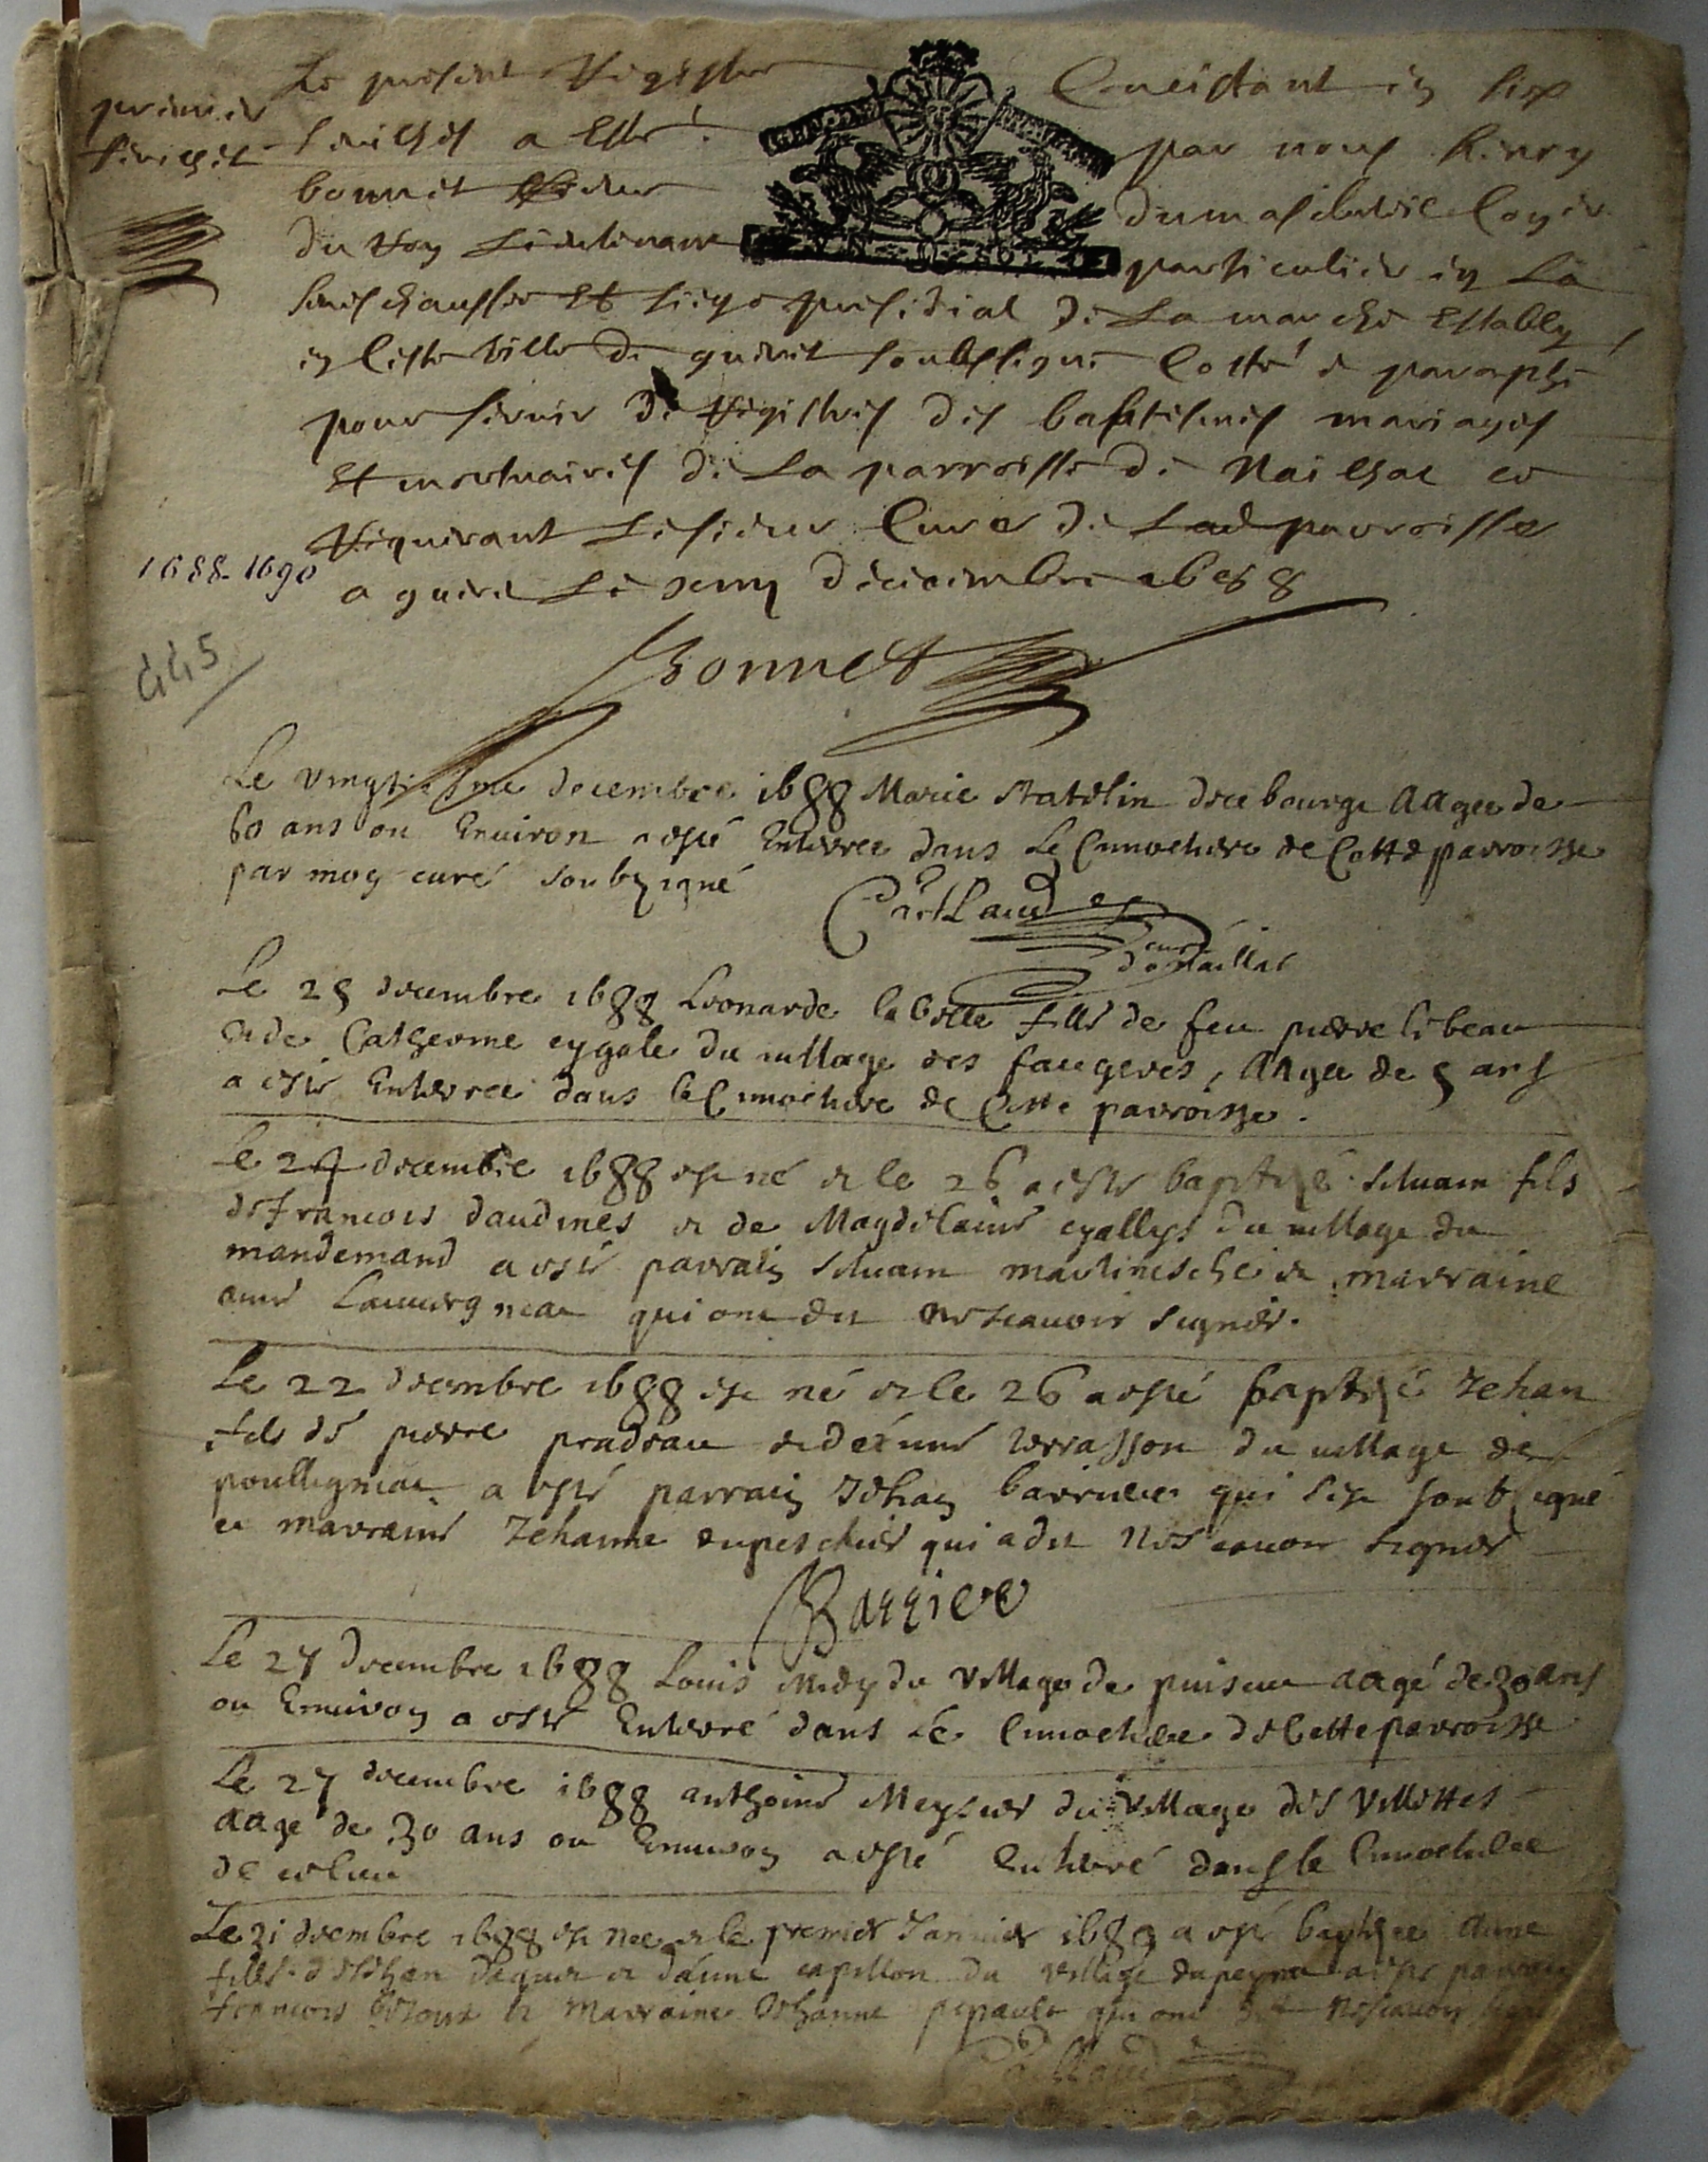 premier
feuillet
Le present Registre Concistant en six
feuilhes a esté par nous henry
bonnet sieur dumasdutueil Coner
du Roy Lieutenant particulier en La
seneschaussee et siege presidial de La marche Estably
en Ceste ville de gueret soubssigne Cotté e paraphé
pour servir de Registres des baptesmes mariages
Et mortuaires de La parroisse de Nailhac ce
Requerant Le sieur Curé de Lad parroisse
a gueret Le decembre 1688
1688-1690
445
Bonnet
Le vingtiesme decembre 1688 Marie du bourg aagee de
60 ans ou Environ a esté Enterree dans Le Cimmetiere de Cette parroisse
par moy curé soubsigné
curé
de naillat
Le 25 decembre 1688 Leonarde fille de feu pierre
et de Catherine du village des faugeres, aagee de 5 ans
a esté Enterree dans le Cimmetiere de Cette parroisse.
Le 24 decembre 1688 est né et le 26 a esté baptizé Silvain fils
de francois daudines et de Magdelaine du village du
a esté parrain Silvain et marraine
anne qui ont dit ne scauoir signer.
Le 22 decembre 1688 est né et le 26 a esté baptizé Jehan
fils de pierre pradeau et d'anne terrasson du village de
a esté parrain Jehan barriere qui s'est soubsigné
et marraine Jehanne qui a dit ne scauoir signer
Barriere
Le 27 decembre 1688 Louis du village de aagé de 30 ans
ou Enuiron a esté Enterré dans Le Cimmetiere de Cette parroisse
Le 27 decembre 1688 anthoine du village des Villettes
aagé de 30 ans ou Enuiron a esté Enterré dans le Cimmetiere
de ce lieu
Le 31 decembre 1688 est nee et le premier Januier 1689 a esté baptizee anne
fille de Jehan et d'anne du village a esté parrain
francois et Marraine Jehanne qui ont dit ne scauoir